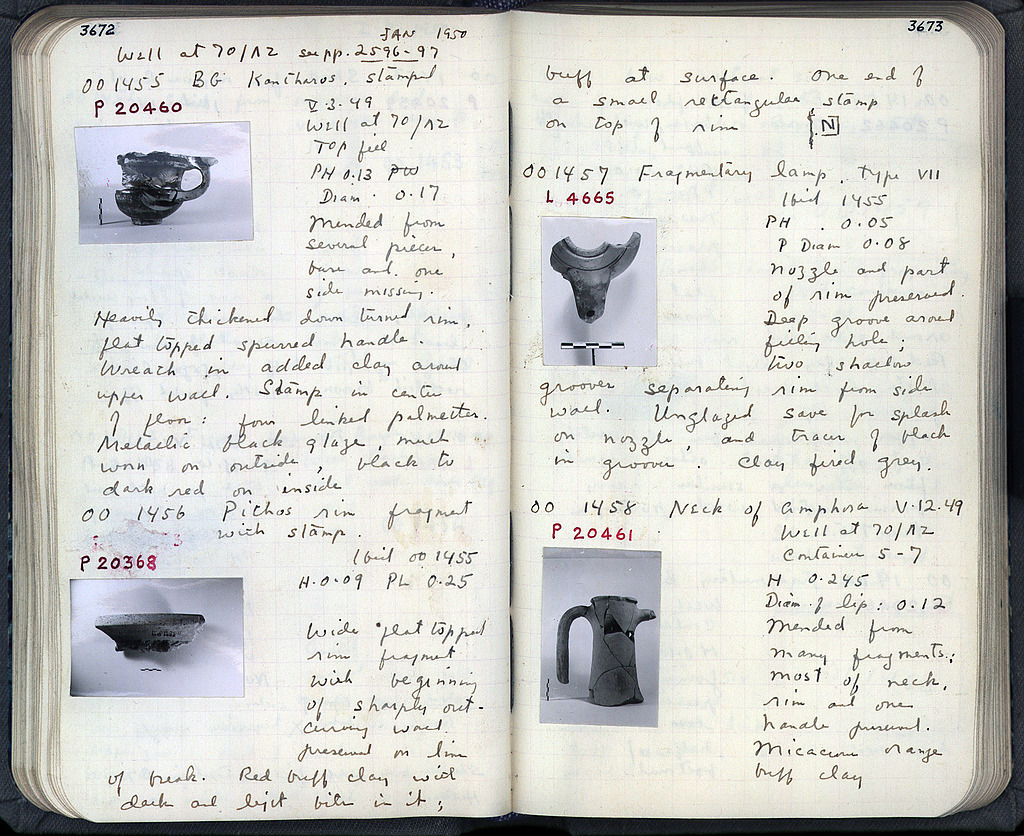 3672
JAN 1950
Well at 70/ΛΖ see pp. 2596-97
OO 1455 BG Kantharos, stamped
P 20460
V·3·49
Well at 70/ΛΖ
Top fill
PH 0.13 PW
Diam. 0.17
Mended from
several pieces,
base and one
side missing.
Heavily thickened down turned rim,
flat topped spurred handle.
Wreath in added clay around
upper wall. Stamp in center
of floor: four linked palmettes.
Metallic black glaze, much
worn on outside, black to
dark red on inside
OO 1456 Pithos rim fragment
with stamp.
P 20368
Ibid OO 1455
H. 0.09 PL 0.25
Wide flat topped
rim fragment
with beginning
of sharply out-
curving wall
preserved on line
of break. Red buff clay with
dark and light bits in it;
3673
buff at surface. One end of
a small rectangular stamp
on top of rim N
OO 1457 Fragmentary lamp. Type VII
L 4665
Ibid 1455
PH. 0.05
P Diam 0.08
Nozzle and part
of rim preserved.
Deep groove around
filling hole;
two shallow
grooves separating rim from side
wall. Unglazed save for splash
on nozzle, and traces of black
in grooves. Clay fired grey.
OO 1458 Neck of Amphora V·12·49
P 20461
Well at 70/ΛΖ
Container 5-7
H 0.245
Diam. of lip: 0.12
Mended from
many fragments;
most of neck,
rim and one
handle preserved.
Micaceous orange
buff clay